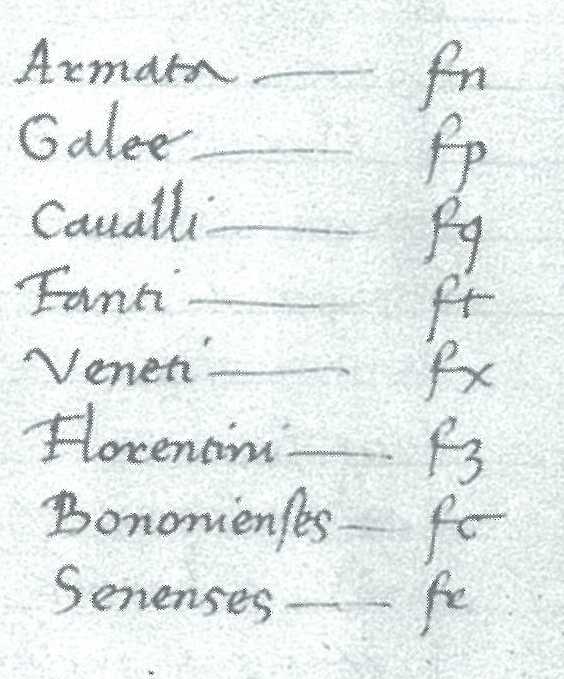 Armata — fn
Galee — fp
Caualli — fq
Fanti — ft
Veneti — fx
Florentini — fz
Bononienſes — fc
Senenses — fe